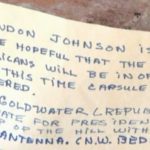 NDON JOHNSON IS
E HOPEFUL THAT THE
ICANS WILL BE IN OF
THIS TIME CAPSULE
ERED.
GOLDWATER (REPUBL
ATE FOR PRESIDEN
P OF THE HILL WITH
ANTENNA. (N.W. BED